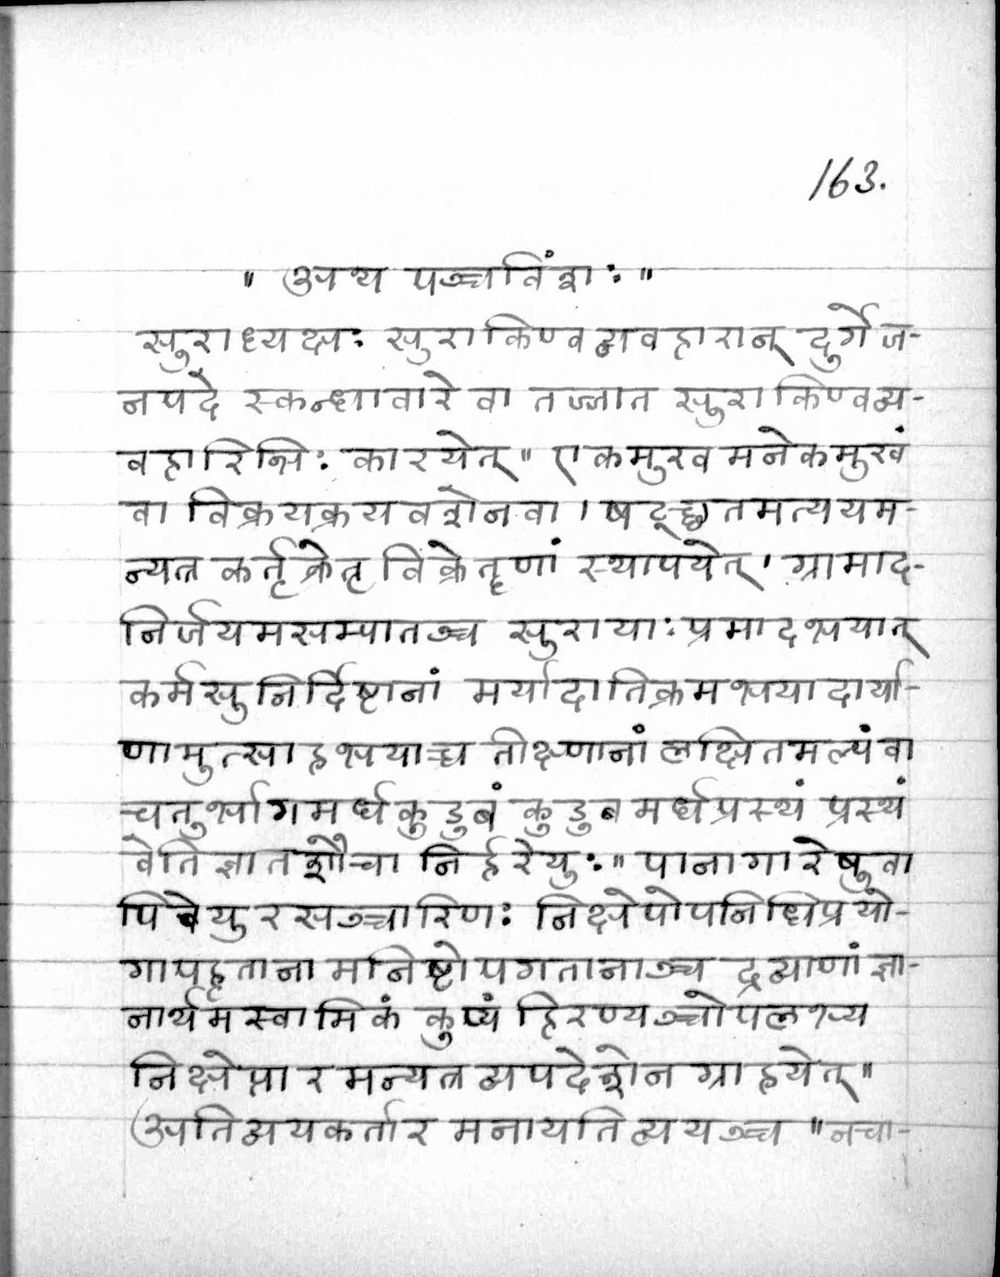 163.
" अथ पञ्चविंशः "
सुराध्यक्षः सुराकिण्वव्यवहारान् दुर्गे ज-
नपदे स्कन्धावारे वा तज्जात सुराकिण्वव्य-
वहारिभिः कारयेत् " एकमुखमनेकमुखं
वा विक्रयक्रयवशेन वा । षट्छतमत्ययम-
न्यत्र कर्तृक्रेतृविक्रेतॄणां स्थापयेत् । ग्रामाद-
निर्जयमसम्पातञ्च सुरायाः प्रमादभयात्
कर्मसु निर्दिष्टानां मर्यादातिक्रमभयादार्या-
णामुत्साहभयाच्च तीक्ष्णानां लक्षितमल्पं वा
चतुर्भागमर्धकुडुबं कुडुबमर्धप्रस्थं प्रस्थं
वेति ज्ञातशौचा निर्हरेयुः " पानागारेषु वा
पिबेयुरसञ्चारिणः निक्षेपोपनिधिप्रयो-
गापहृतानामनिष्टोपगतानाञ्च द्रव्याणां ज्ञा-
नार्थमस्वामिकं कुप्यं हिरण्यञ्चोपलभ्य
निक्षेप्तारमन्यत्र व्यपदेशेन ग्राहयेत् "
अतिव्ययकर्तारमनायतिव्ययञ्च " नचा-